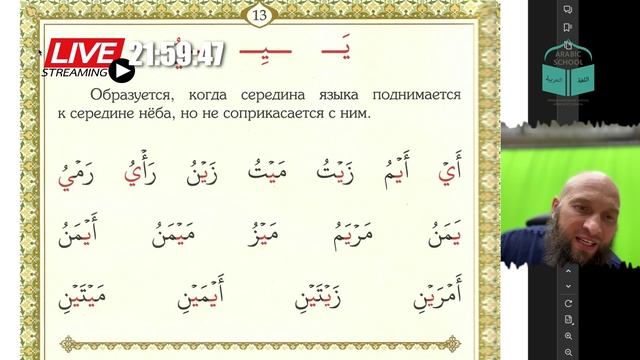 13
LIVE
STREAMING
21:59:47
يَـ ـيِـ ـيُ
Образуется, когда середина языка поднимается
к середине нёба, но не соприкасается с ним.
أَيْ أَيْمُ زَيْتُ مَيْتُ زَيْنُ رَأْيُ رَمْيُ
يَمَنُ مَرْيَمُ مَيْزُ مَيْمَنُ أَيْمَنُ
أَمْرَيْنِ زَيْتَيْنِ أَيْمَيْنِ مَيْتَيْنِ
ARABIC
SCHOOL
اللغة
العربية